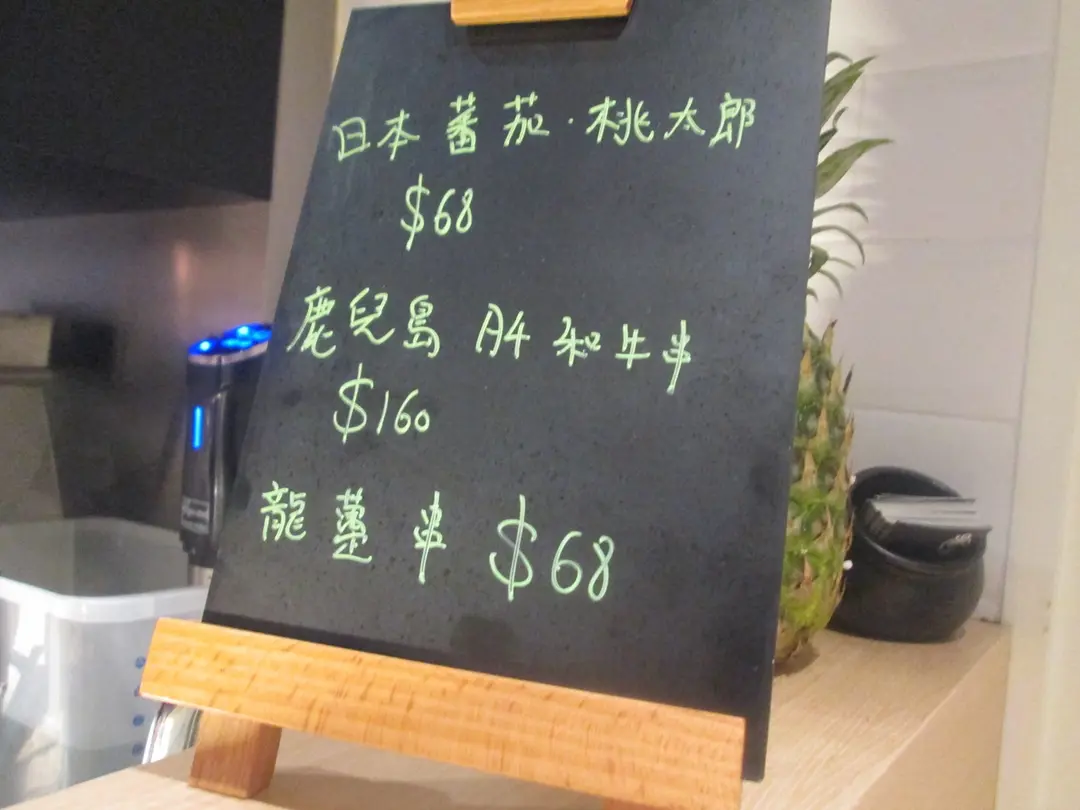 日本蕃茄·桃太郎
$68
鹿兒島 A4 和牛串
$160
龍躉串 $68